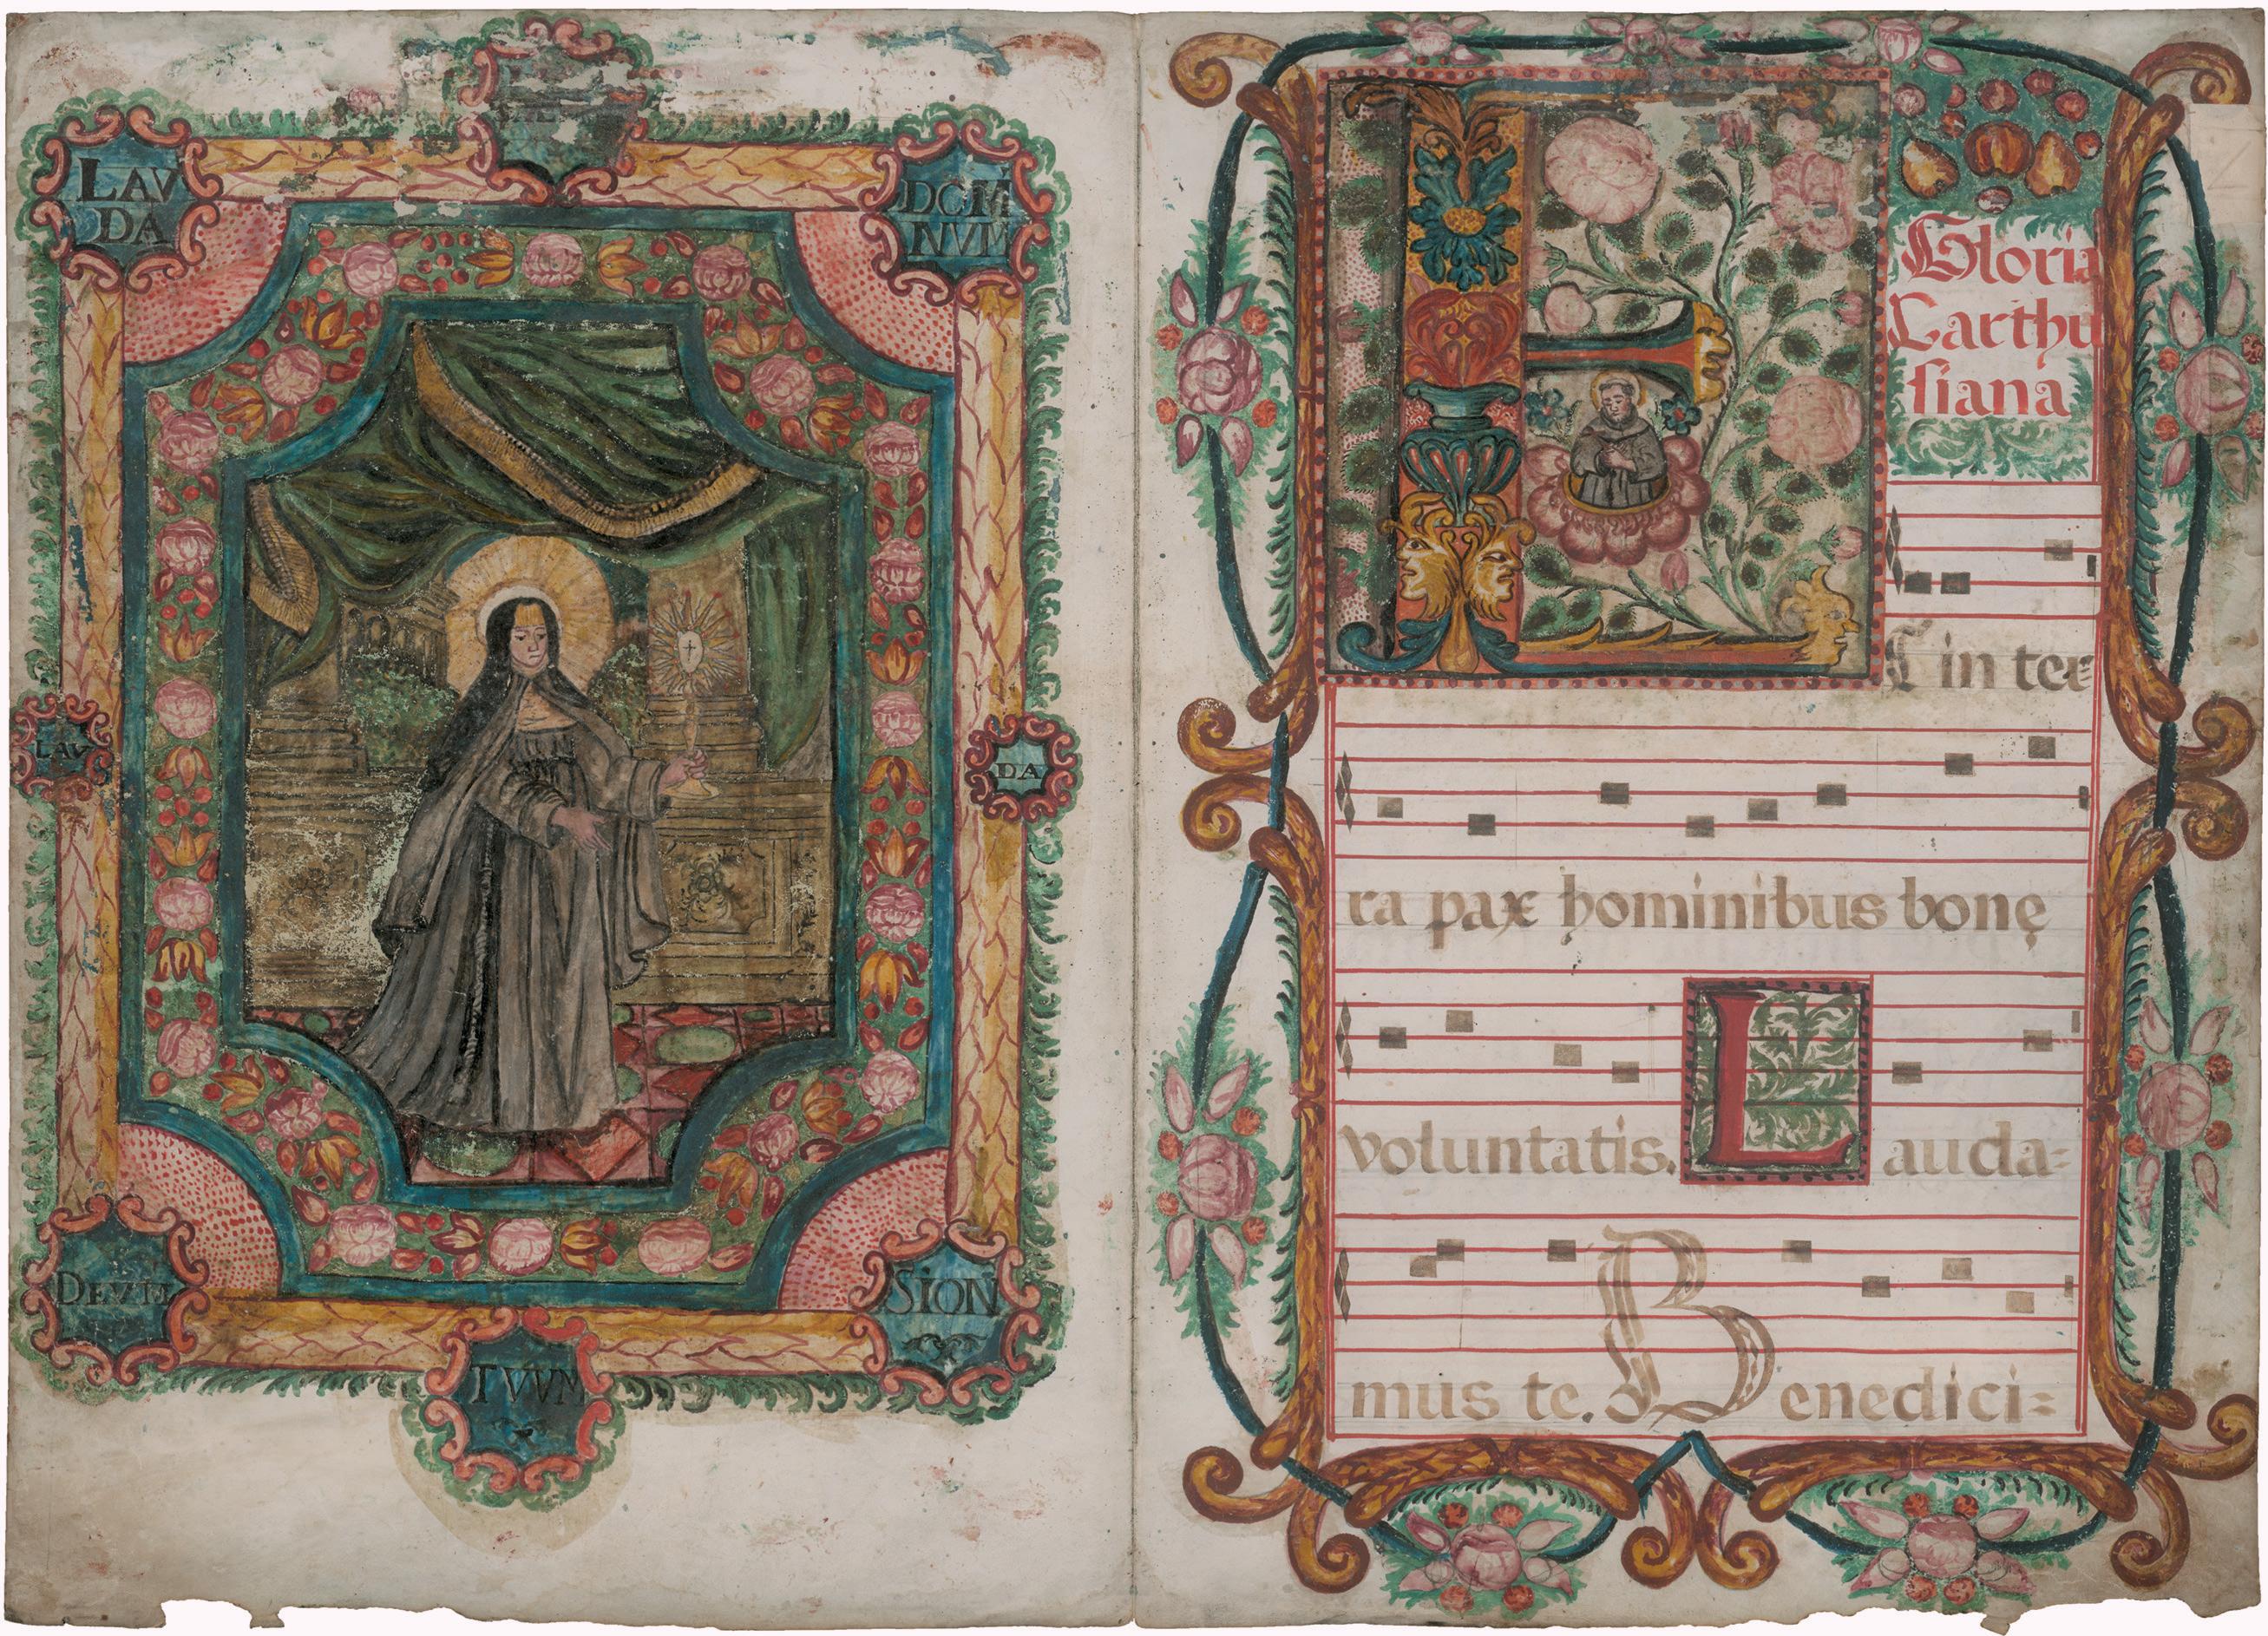 LAV
DA
DOM̄
NVM
LAV
DA
DEVM
TVVM
SION
Gloria
Carthu
ſiana
ET in ter
ra pax hominibus bonę
voluntatis. Lauda=
mus te. Benedici=